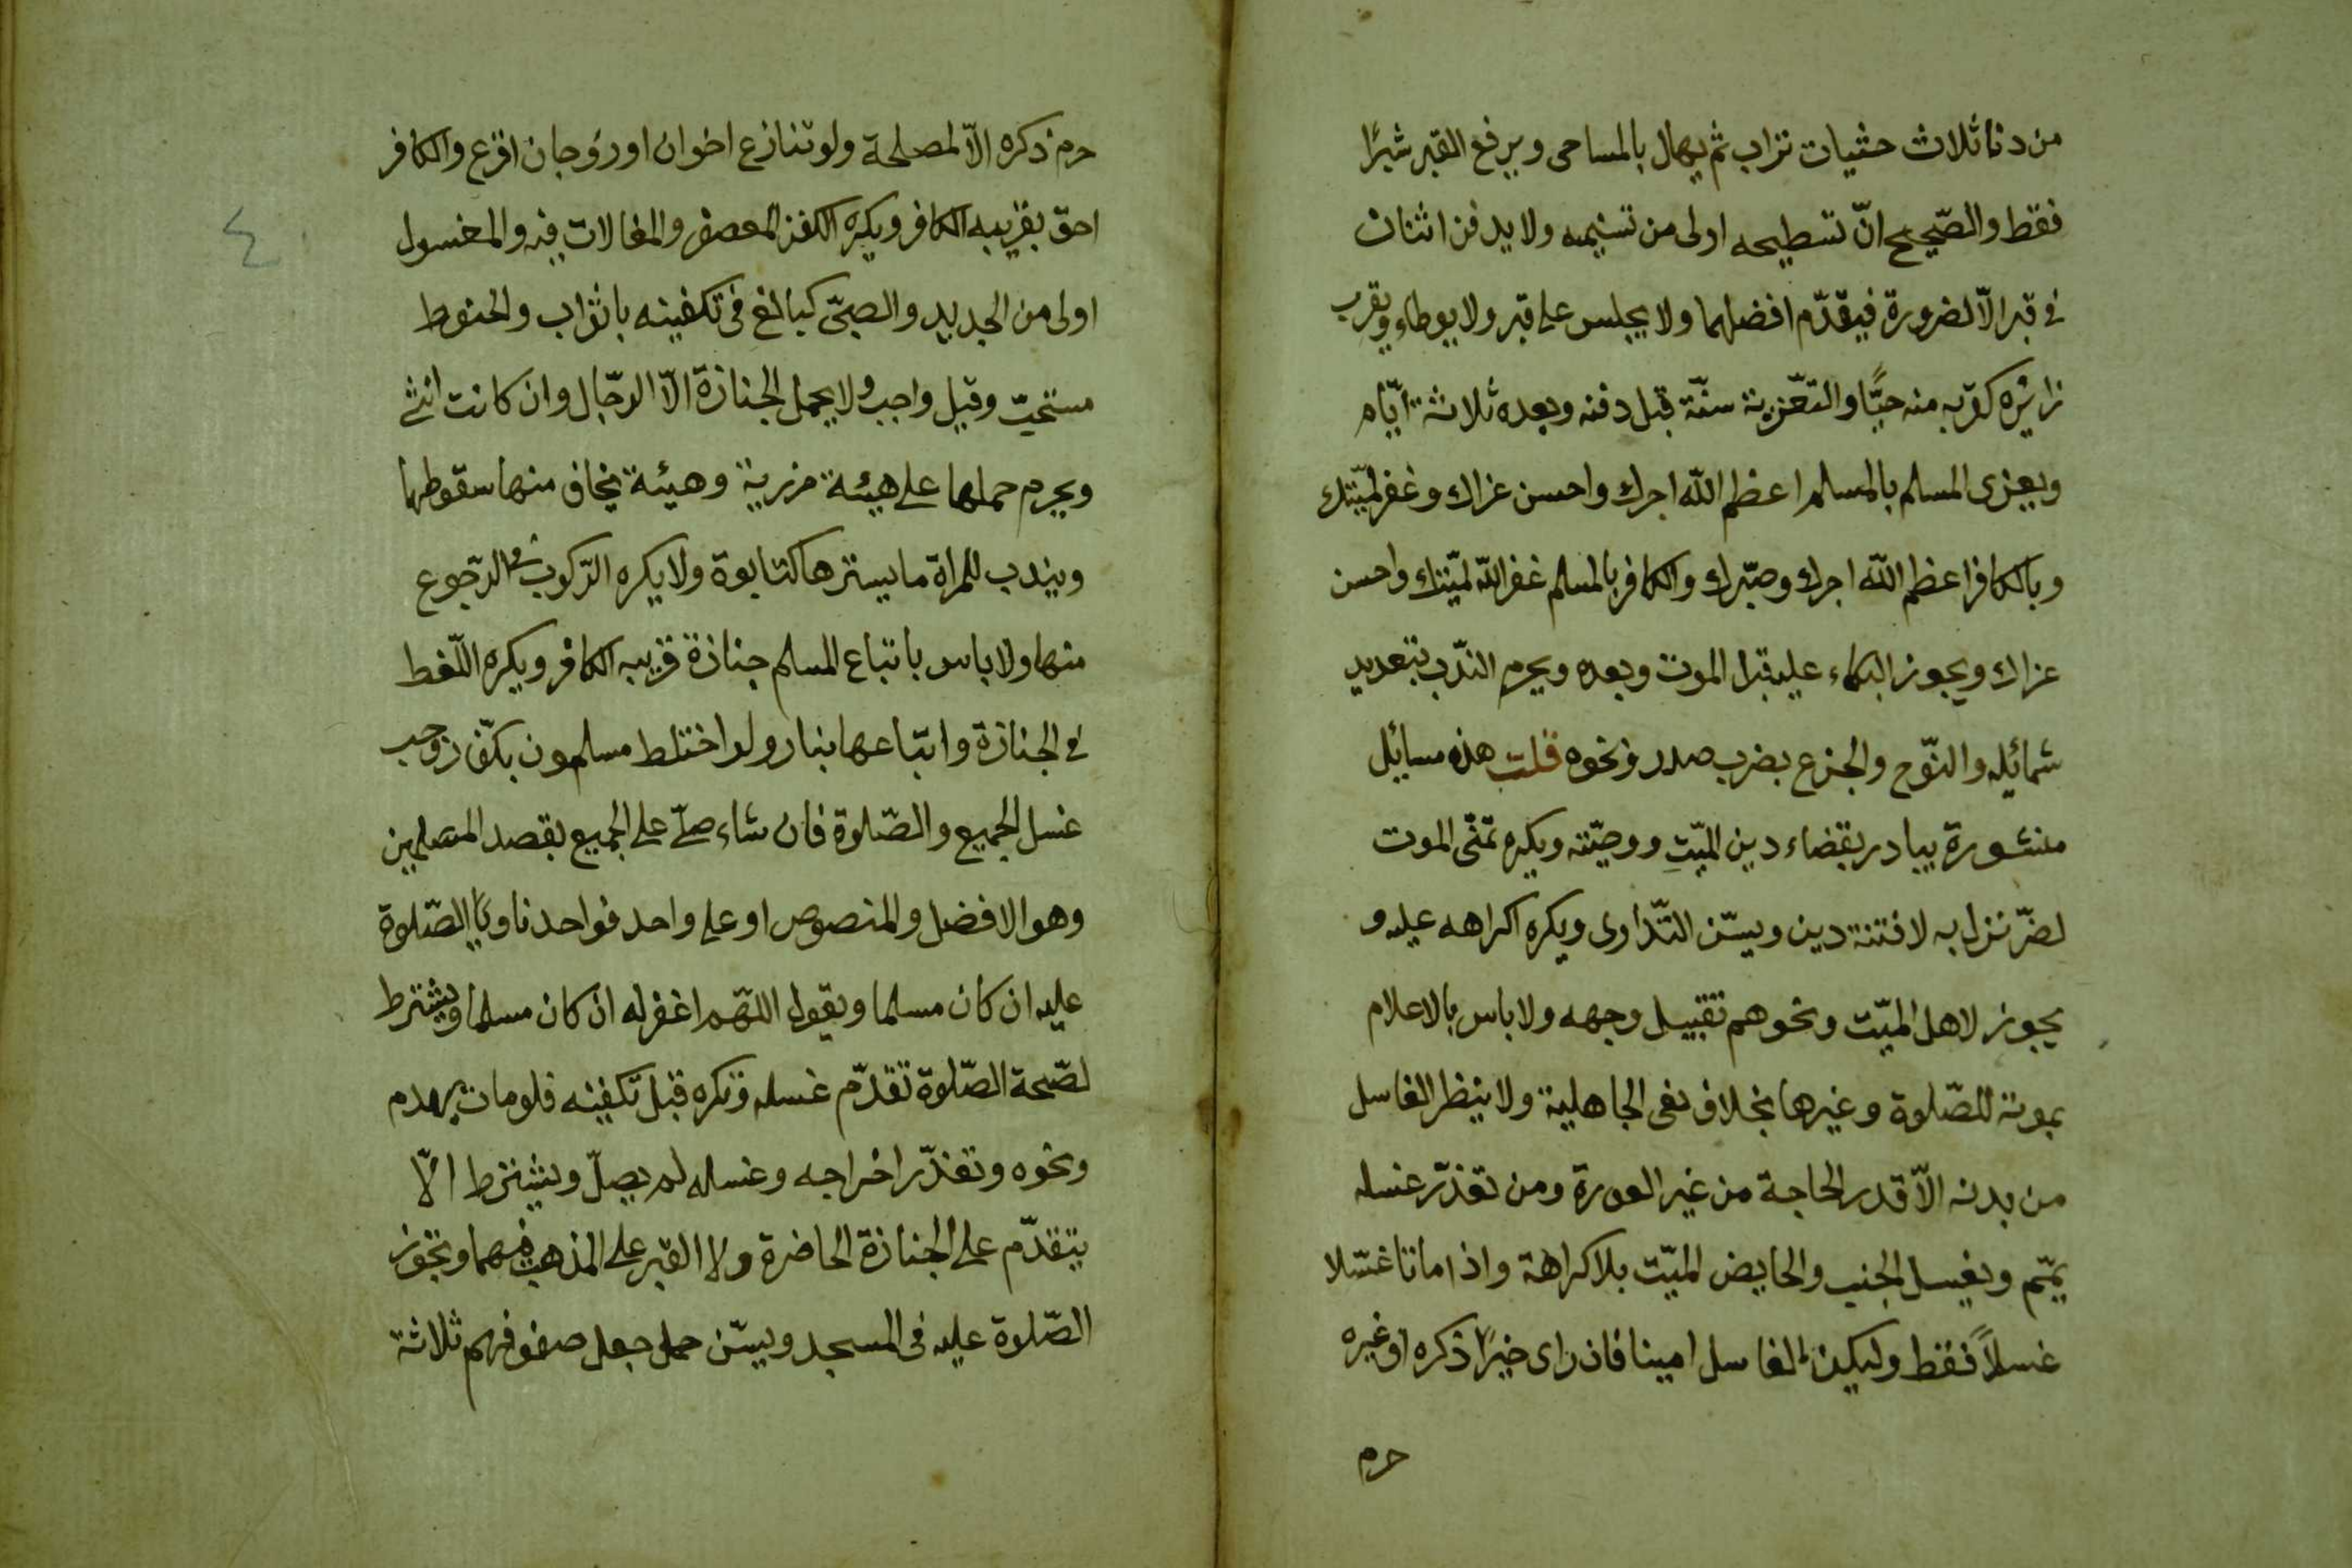 من دنا ثلاث حثيات تراب ثم يهال بالمساحى ويرفع القبر شبرًا
فقط والصّحيح انّ تسطيحه اولى من تسنيمه ولا يدفن اثنان
فى قبر الّا لضرورة فيقدّم افضلهما ولا يجلس على قبر ولا يوطاء ويقرب
زائره كقربه منه حيًّا والتعّزية سنّة قبل دفنه وبعده ثلاثة ايّام
ويعزى المسلم بالمسلم اعظم اللّه اجرك واحسن عزاك وغفر لميّتك
وبالكافر اعظم اللّه اجرك وصبّرك والكافر بالمسلم غفر اللّه لميّتك واحسن
عزاك ويجوز البكاء عليه قبل الموت وبعده ويحرم الندّب بتعديد
شمائله والنّوح والجزع بضرب صدر ونحوه قلت هذه مسايل
منثورة يبادر بقضاء دين الميّت ووصيّته ويكره تمنّى الموت
لضرّ نزل به لا فتنة دين ويسّن التّداوى ويكره اكراهه عليه و
يجوز لاهل الميّت ونحوهم تقبيل وجهه ولا باس بالاعلام
بموته للصّلوة وغيرها بخلاف نعى الجاهلية ولا ينظر الغاسل
من بدنه الّا قدر الحاجة من غير العورة ومن تعذّر غسله
يمّم ويغسل الجنب والحايض الميّت بلا كراهة واذا ماتا غسّلا
غسلاً فقط وليكن الغاسل امينا فان راى خيرًا ذكره او غيره
حرم
حرم ذكره الّا لمصلحة ولو تنازع اخوان او زوجان اقرع والكافر
احقّ بقريبه الكافر ويكره الكفن المعصفر والمغالات فيه والمغسول
اولى من الجديد والصبىّ كبالغ فى تكفينه باثواب والحنوط
مستحبّ وقيل واجب ولا يحمل الجنازة الّا الرجّال وان كانت انثى
ويحرم حملها على هيئة مزرية وهيئة يخاف منها سقوطها
ويندب للمراة ما يسترها كتابوة ولا يكره الرّكوب فى الرجّوع
منها ولا باس باتباع المسلم جنازة قريبه الكافر ويكره اللّغط
فى الجنازة واتبّاعها بنار ولو اختلط مسلمون بكفّار وجب
غسل الجميع والصّلوة فان شاء صلّى على الجميع بقصد المسلمين
وهو الافضل والمنصوص او على واحد فواحد ناويًا الصّلوة
عليه ان كان مسلما ويقول اللهّم اغفر له ان كان مسلما ويشترط
لصّحة الصّلوة تقدّم غسله وتكره قبل تكفينه فلو مات بهدم
ونحوه وتعذّر اخراجه وغسله لم يصلّ ويشترط الّا
يتقدّم على الجنازة الحاضرة ولا القبر على المذهب فيهما وتجوز
الصّلوة عليه فى المسجد ويسّن جعل صفوفهم ثلاثة
٤